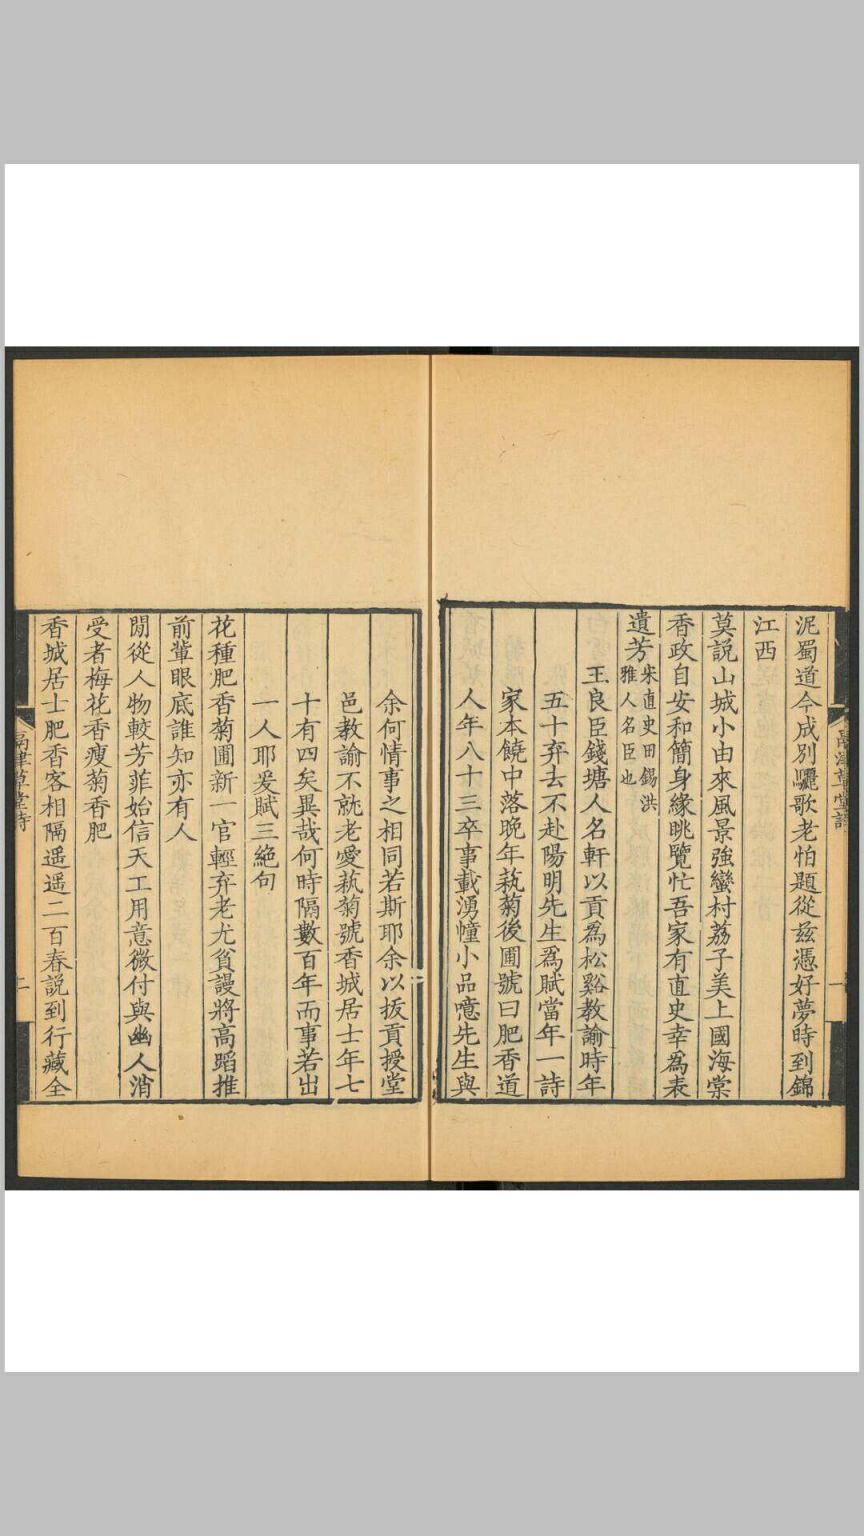 泥蜀道今成別驪歌老怕題從茲憑好夢時到錦
江西
莫說山城小由來風景強蠻村荔子美上國海棠
香政自安和簡身緣眺覽忙吾家有直史幸為表
遺芳宋直史田錫洪雅人名臣也
王良臣錢塘人名軒以貢為松谿教諭時年
五十弃去不赴陽明先生為賦當年一詩
家本饒中落晚年蓺菊後圃號曰肥香道
人年八十三卒事載湧幢小品噫先生與
余何情事之相同若斯耶余以拔貢授堂
邑教諭不就老愛蓺菊號香城居士年七
十有四矣異哉何時隔數百年而事若出
一人耶爰賦三絕句
花種肥香菊圃新一官輕弃老尤貧謾將高蹈推
前輩眼底誰知亦有人
閒從人物較芳菲始信天工用意微付與幽人消
受者梅花香瘦菊香肥
香城居士肥香客相隔遥遥二百春說到行藏全